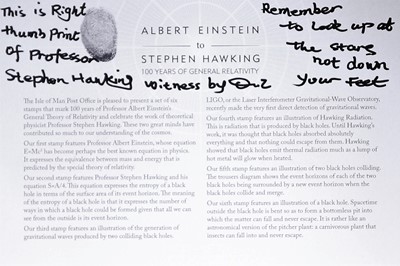 This is Right
thumb Print
of Professor
Stephen Hawking
witness by
Remember
to Look up at
The Stars
not down
your Feet
ALBERT EINSTEIN
to
STEPHEN HAWKING
100 YEARS OF GENERAL RELATIVITY
The Isle of Man Post Office is pleased to present a set of six
stamps that mark 100 years of Professor Albert Einstein's
General Theory of Relativity and celebrate the work of theoretical
physicist Professor Stephen Hawking. These two great minds have
contributed so much to our understanding of the cosmos.
Our first stamp features Professor Albert Einstein, whose equation
E=Mc² has become perhaps the best known equation in physics.
It expresses the equivalence between mass and energy that is
predicted by the special theory of relativity.
Our second stamp features Professor Stephen Hawking and his
equation S=A/4. This equation expresses the entropy of a black
hole in terms of the surface area of its event horizon. The meaning
of the entropy of a black hole is that it expresses the number of
ways in which a black hole could be formed given that all we can
see from the outside is its event horizon.
Our third stamp features an illustration of the generation of
gravitational waves produced by two colliding black holes.
LIGO, or the Laser Interferometer Gravitational-Wave Observatory,
recently made the very first direct detection of gravitational waves.
Our fourth stamp features an illustration of Hawking Radiation.
This is radiation that is produced by black holes. Until Hawking's
work, it was thought that black holes absorbed absolutely
everything and that nothing could escape from them. Hawking
showed that black holes emit thermal radiation much as a lump of
hot metal will glow when heated.
Our fifth stamp features an illustration of two black holes colliding.
The trousers diagram shows the event horizons of each of the two
black holes being surrounded by a new event horizon when the
black holes collide and merge.
Our sixth stamp features an illustration of a black hole. Spacetime
outside the black hole is bent so as to form a bottomless pit into
which the matter can fall and never escape. It is rather like an
astronomical version of the pitcher plant: a carnivorous plant that
insects can fall into and never escape.